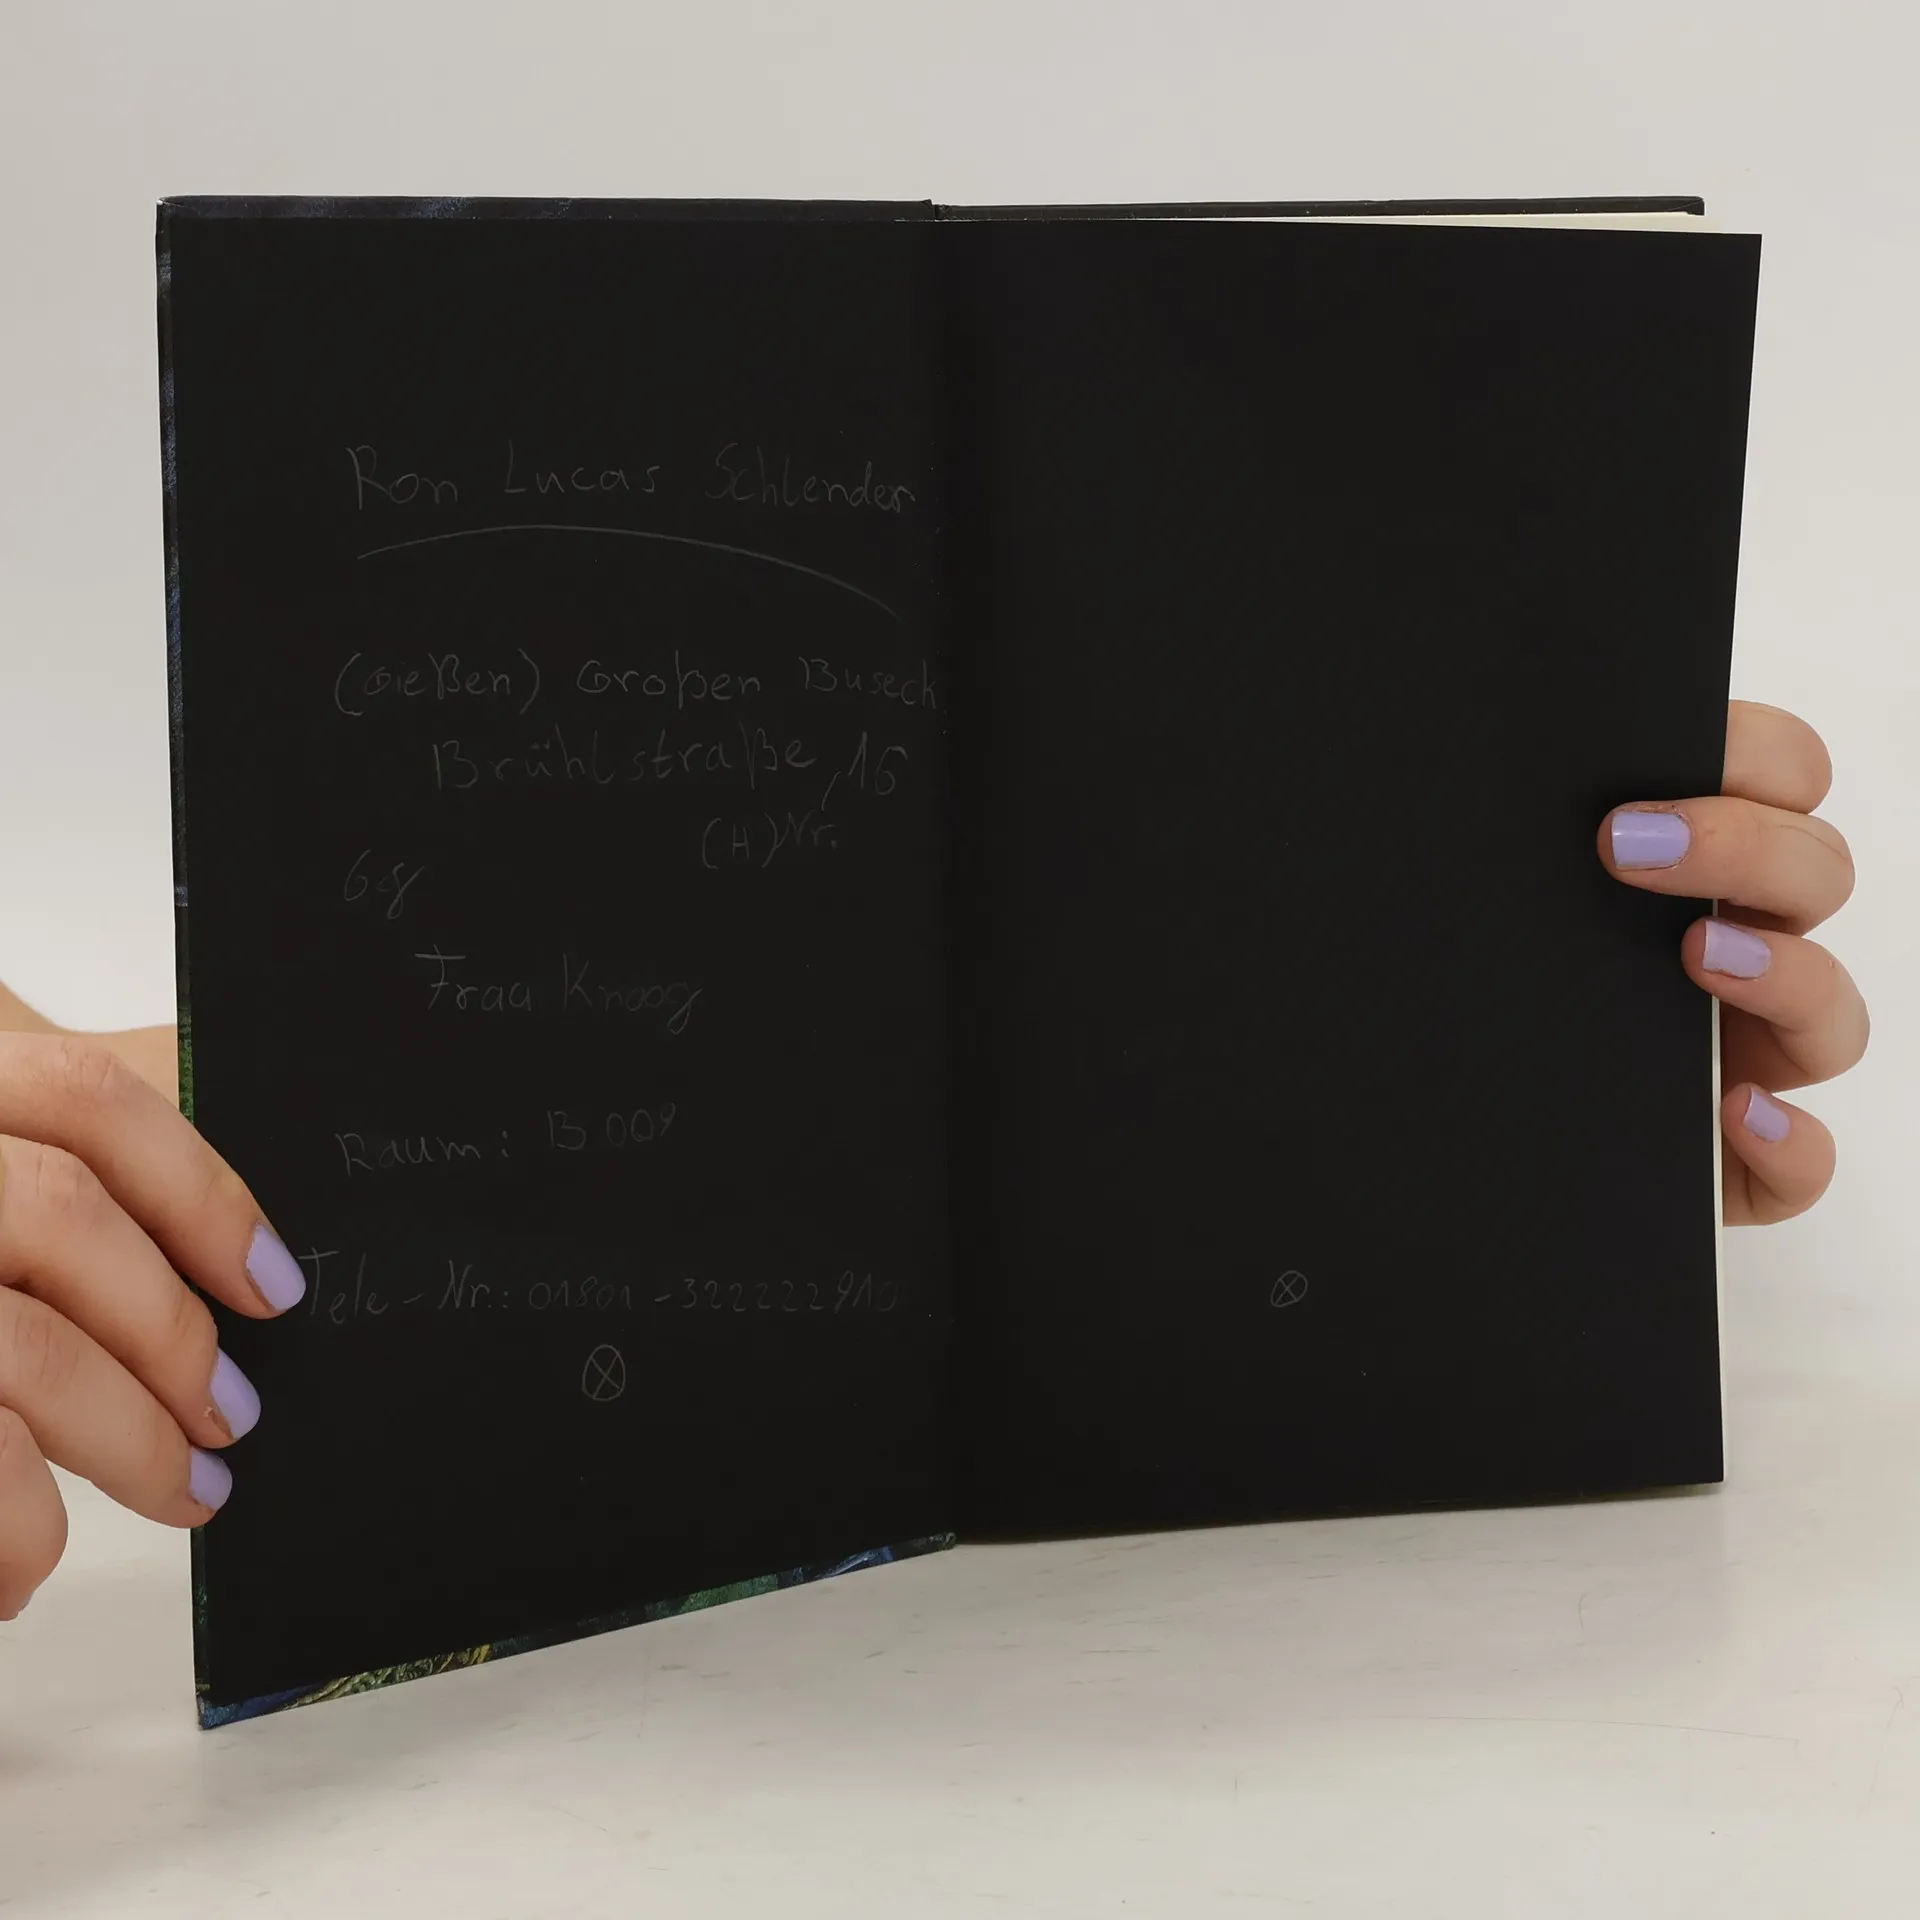 Ron Lucas Schlender
(Gießen) Großen Buseck
Brühlstraße, 16
(H) Nr.
6g
Frau Knoog
Raum: B 009
Tele-Nr.: 01801-322222910